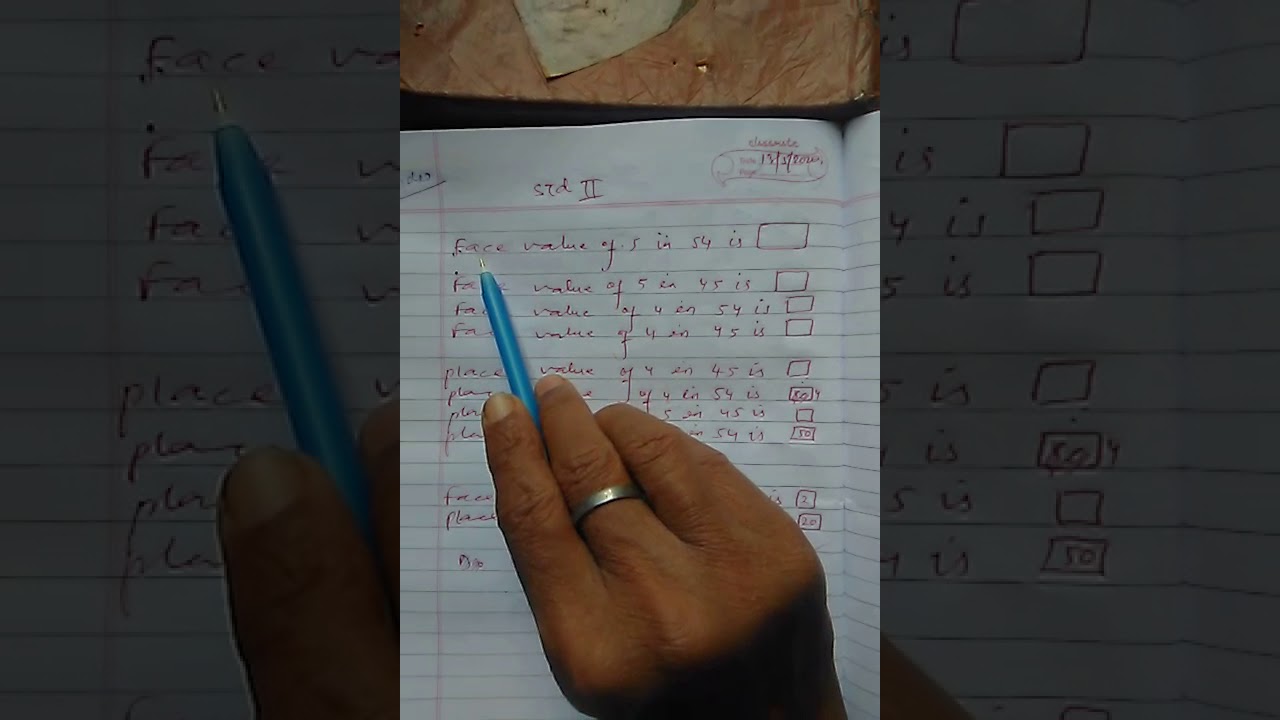 classmate
Date 13/3/2020
Page
Std II
Face value of 5 in 54 is
Face value of 5 in 45 is
Face value of 4 in 54 is
Face value of 4 in 45 is
place value of 4 in 45 is
of 4 in 54 is 4
5 in 45 is
in 54 is 50
Face is 2
place 20